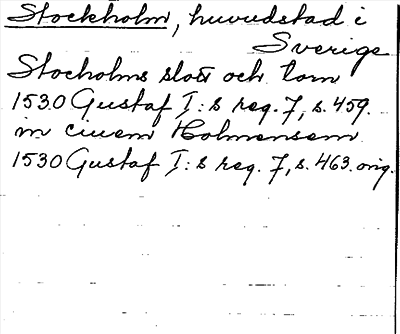 Stockholm, huvudstad i
Sverige
Stocholms slott och lam
1530 Gustaf I:s reg. 7, s. 459.
in civem Holmensem
1530 Gustaf I:s reg. 7, s. 463. orig.